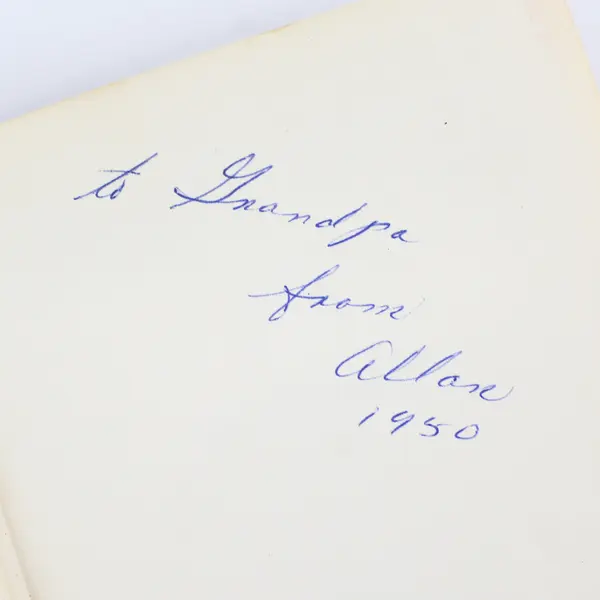 to Grandpa
from
Allan
1950